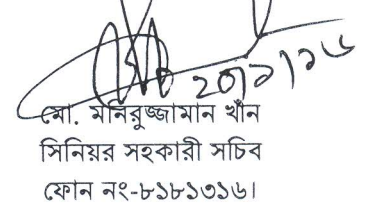 ২০/১/১৬
মো. মনিরুজ্জামান খাঁন
সিনিয়র সহকারী সচিব
ফোন নং-৮১৮১৩১৬।